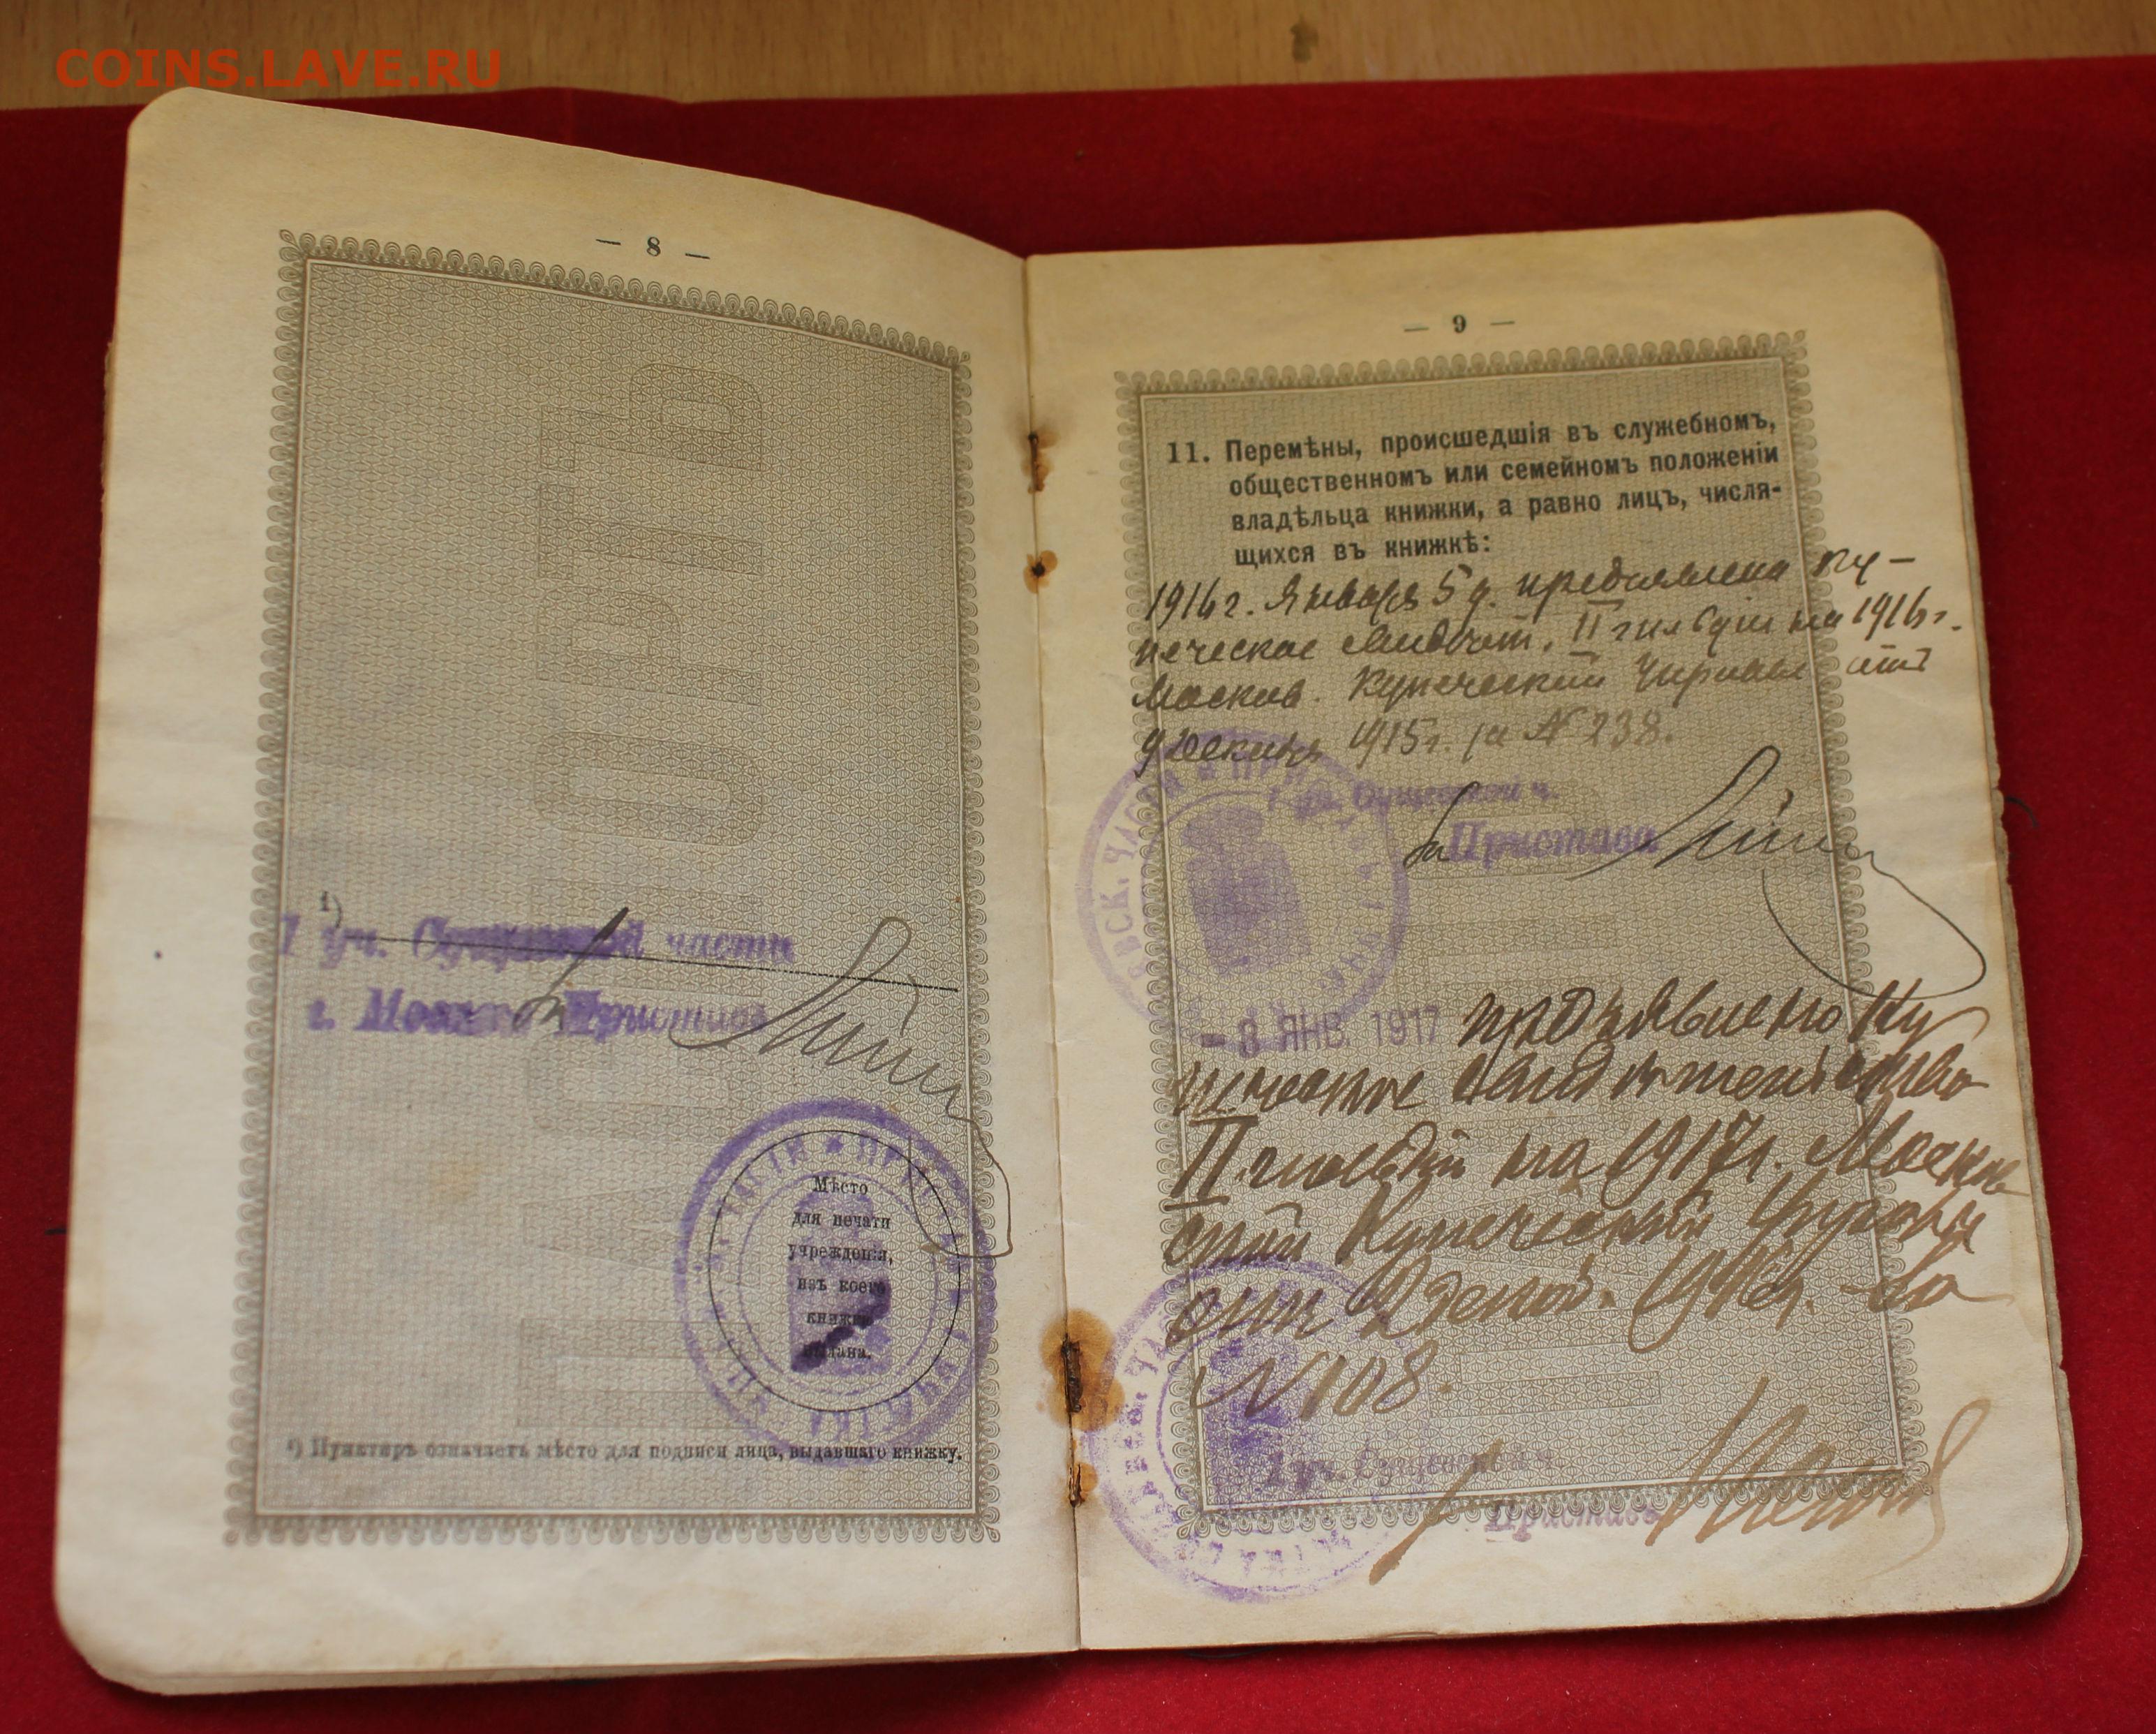 COINS.LAVE.RU
— 8 —
1)
1 уч. Сущевской части
г. Москвы Пристава
Мѣсто
для печати
учрежденія,
изъ коего
книжка
выдана.
¹) Пунктиръ означаетъ мѣсто для подписи лица, выдавшаго книжку.
— 9 —
11. Перемѣны, происшедшія въ служебномъ,
общественномъ или семейномъ положеніи
владѣльца книжки, а равно лицъ, числя-
щихся въ книжкѣ:
1916 г. Января 5 д. предъявлена ку-
печеское свидѣт. II гильдіи на 1916 г.
Москов. Купеческой Управы отъ
9 Декабря 1915 г. за № 238.
1 уч. Сущевской ч.
за Пристава
- 3 ЯНВ. 1917 предъявлено Ку
печеское свидѣтельство
II гильдіи на 1917 г. Москов
ской Купеческой Управы
отъ Декаб. 1916 г. за
№ 108.
1 уч. Сущевской ч.
Пристава